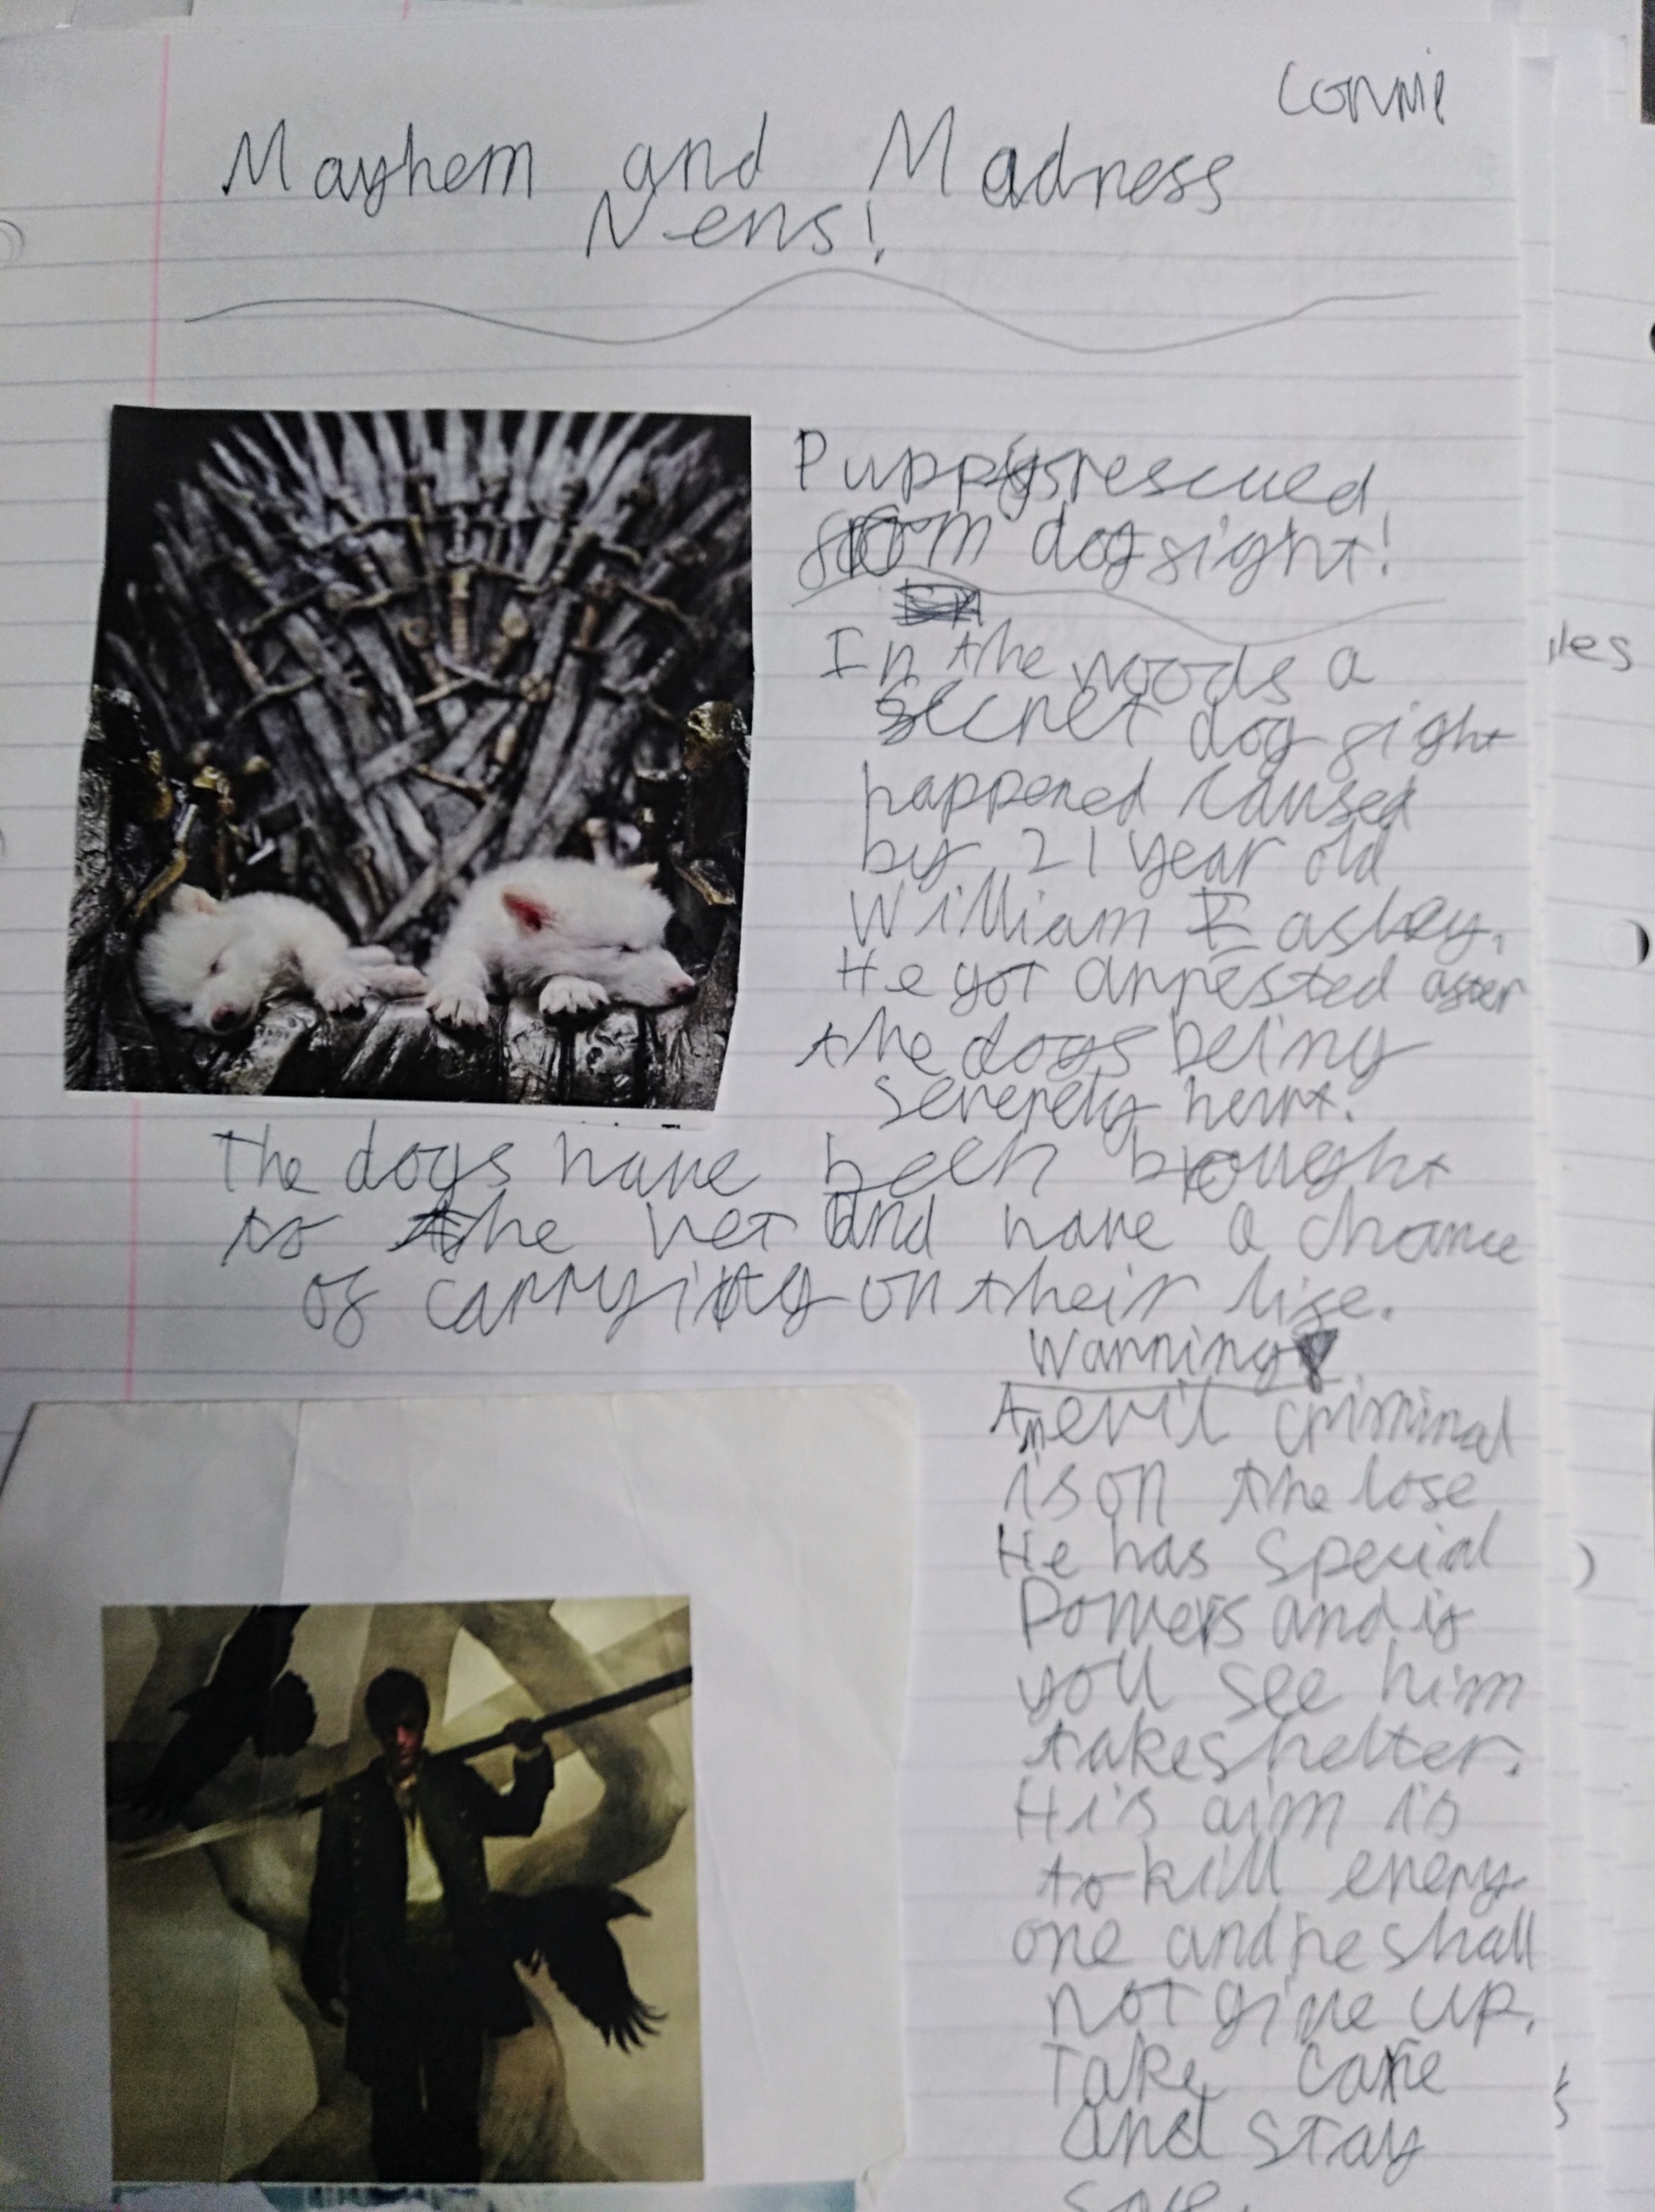 Connie
Mayhem and Madness
News!
Puppys rescued
from dog fight!
In the woods a
secret dog fight
happened caused
by 21 year old
William Eashey.
He got arrested after
the dogs being
severely hurt.
the dogs have been brought
to the vet and have a chance
of carrying on their life.
Warning
An evil criminal
is on the lose
He has special
Powers and if
you see him
take shelter.
His aim is
to kill every
one and he shall
not give up.
Take care
and stay
safe.
iles